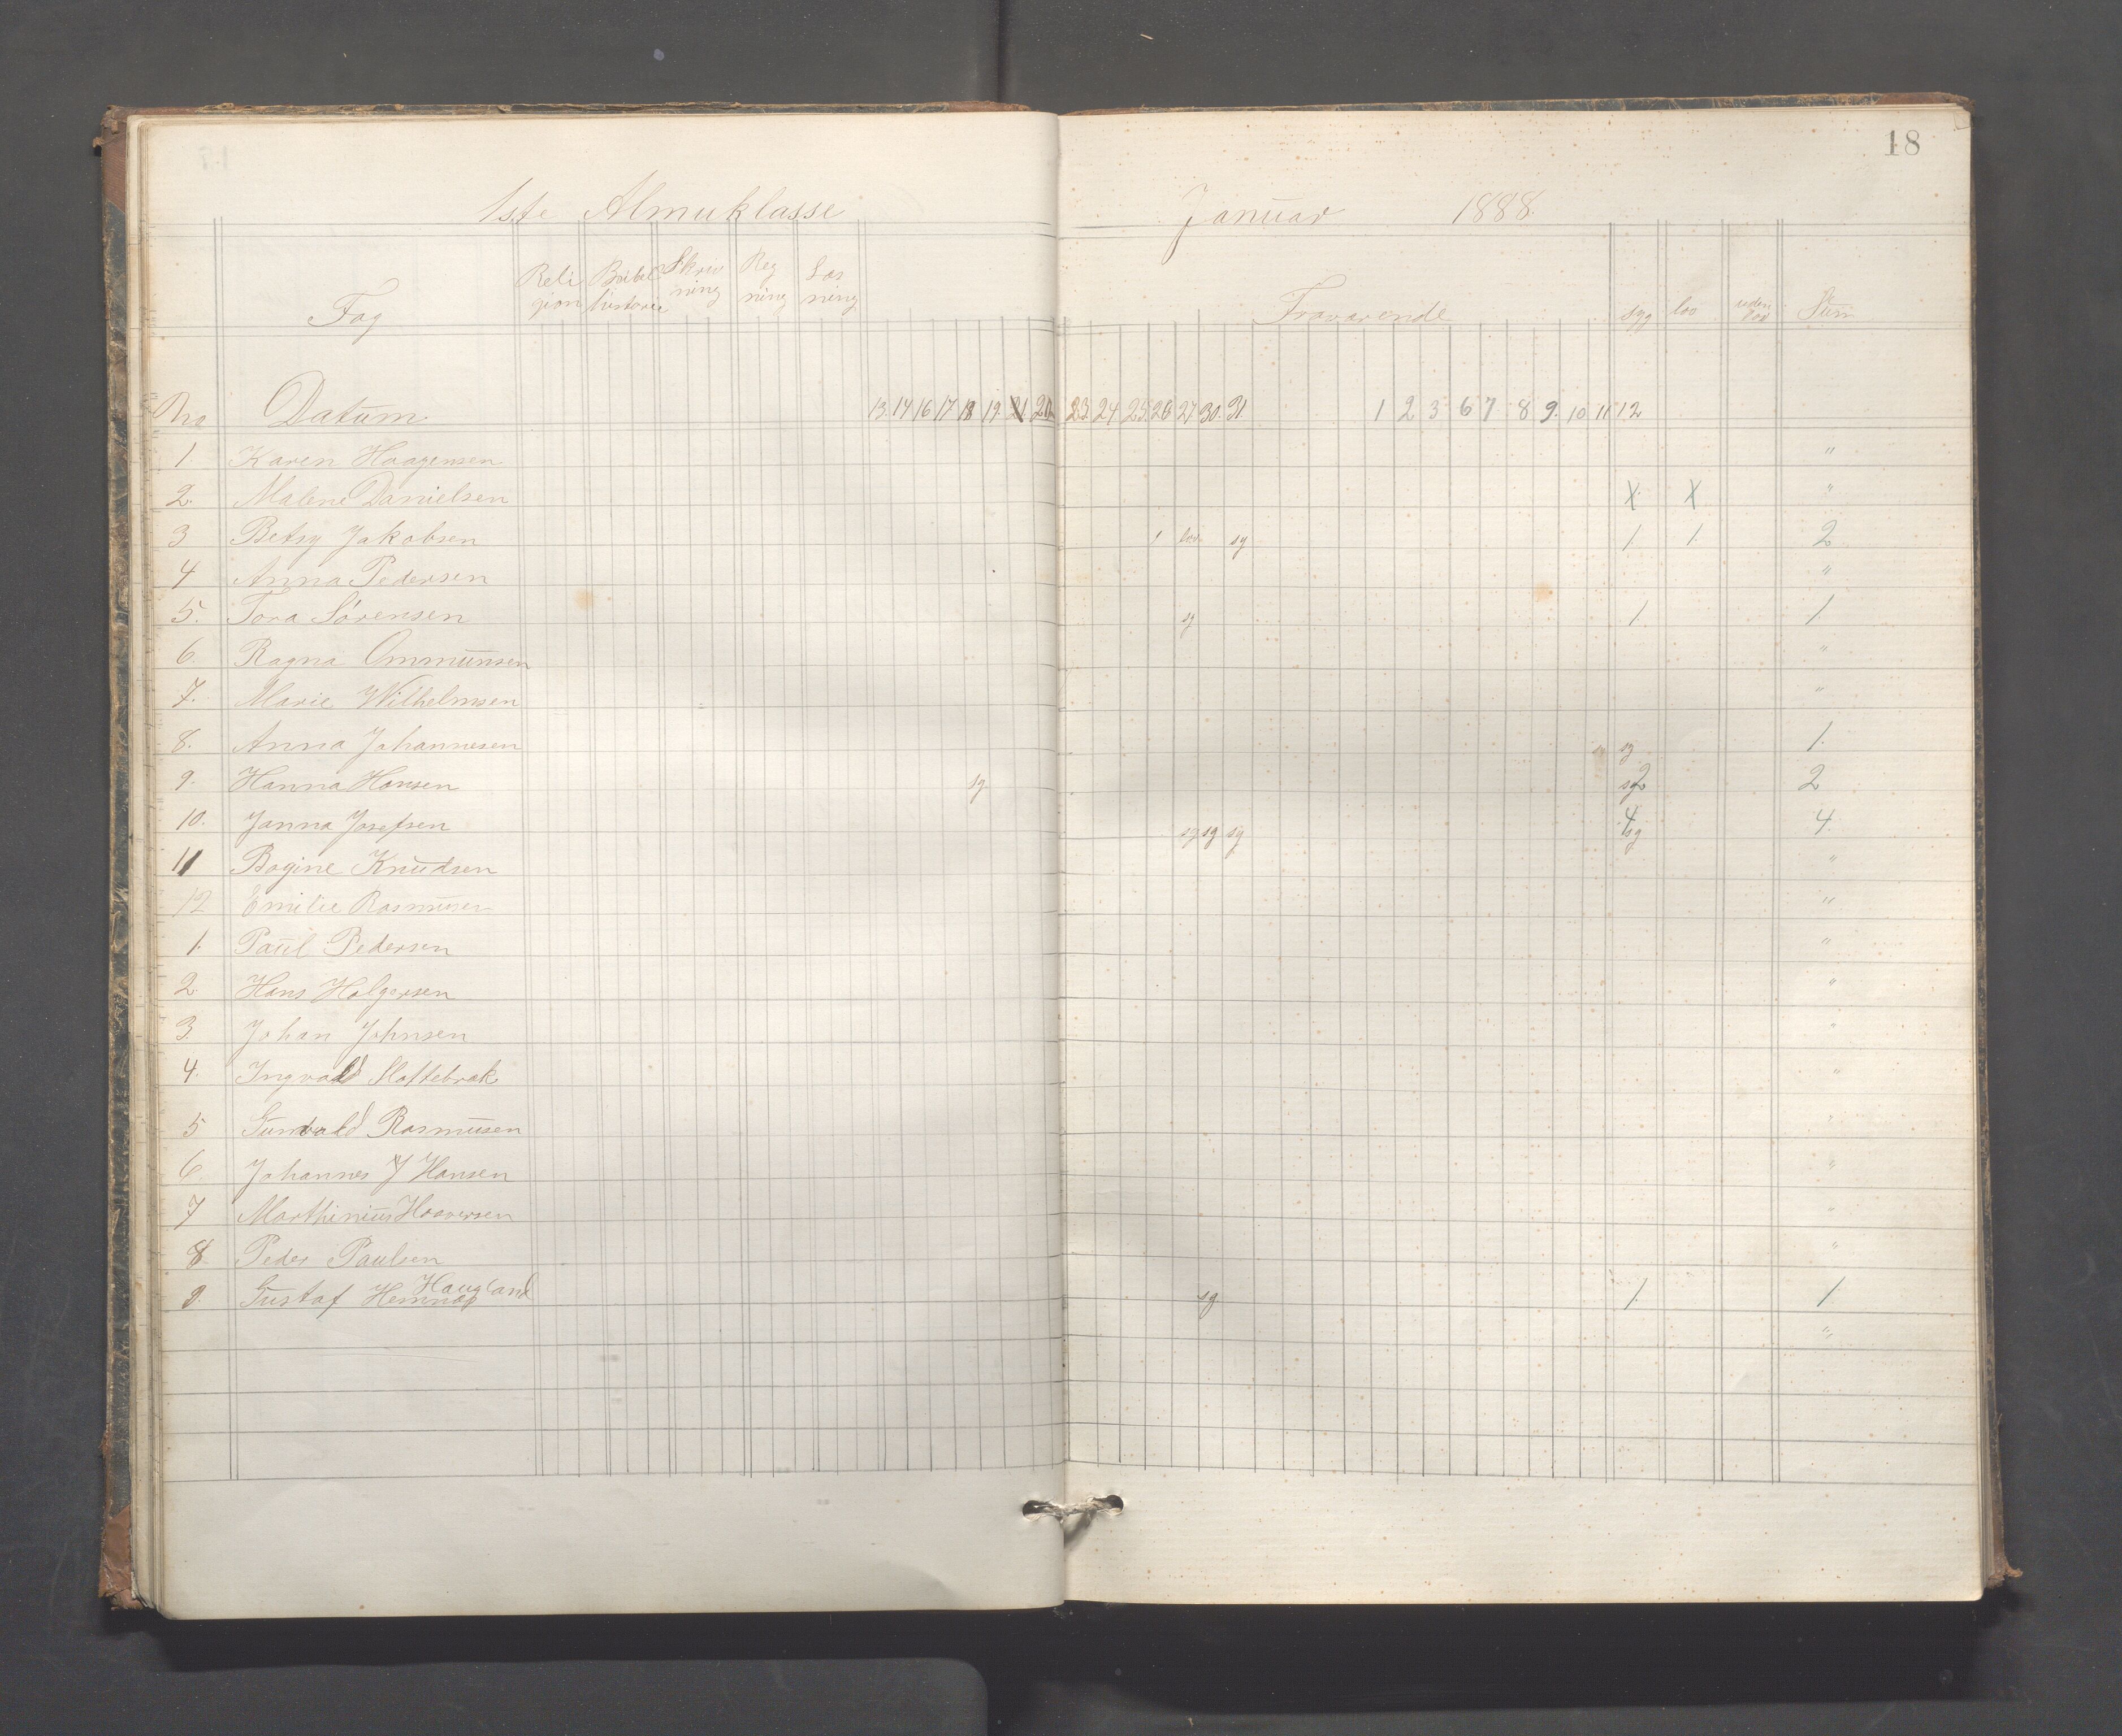 18
1ste Almuklasse Januar 1888.
Fag Religion Bibelhistorie Skrivning Regning Læsning Fraværende syg lov uden lov Sum
No Datum 13. 14 16 17 18 19. 21. 20 23. 24 25. 26. 27. 30. 31. 1 2 3 6 7 8 9. 10 11 12
1. Karen Haagensen "
2. Malene Danielsen X. X "
3 Betsy Jakobsen 1 lov sg 1. 1. 2
4 Anna Pedersen "
5. Tora Sørensen sg 1. 1.
6. Ragna Ommunsen "
7. Marie Wilhelmsen "
8. Anna Johannesen sg 1.
9. Hanna Hansen sg sg 2 2
10. Janna Josefsen sg sg sg 4 sg 4.
11 Bogine Knudsen "
12 Emilie Rasmusen "
1. Paul Pedersen "
2. Hans Holgersen "
3. Johan Johnsen "
4. Ingvald Slottebrak "
5 Gunvald Rasmusen "
6. Johannes J Hansen "
7 Marthinius Haaversen "
8 Peder Paulsen "
9. Gustaf Haugland sg 1. 1.
"